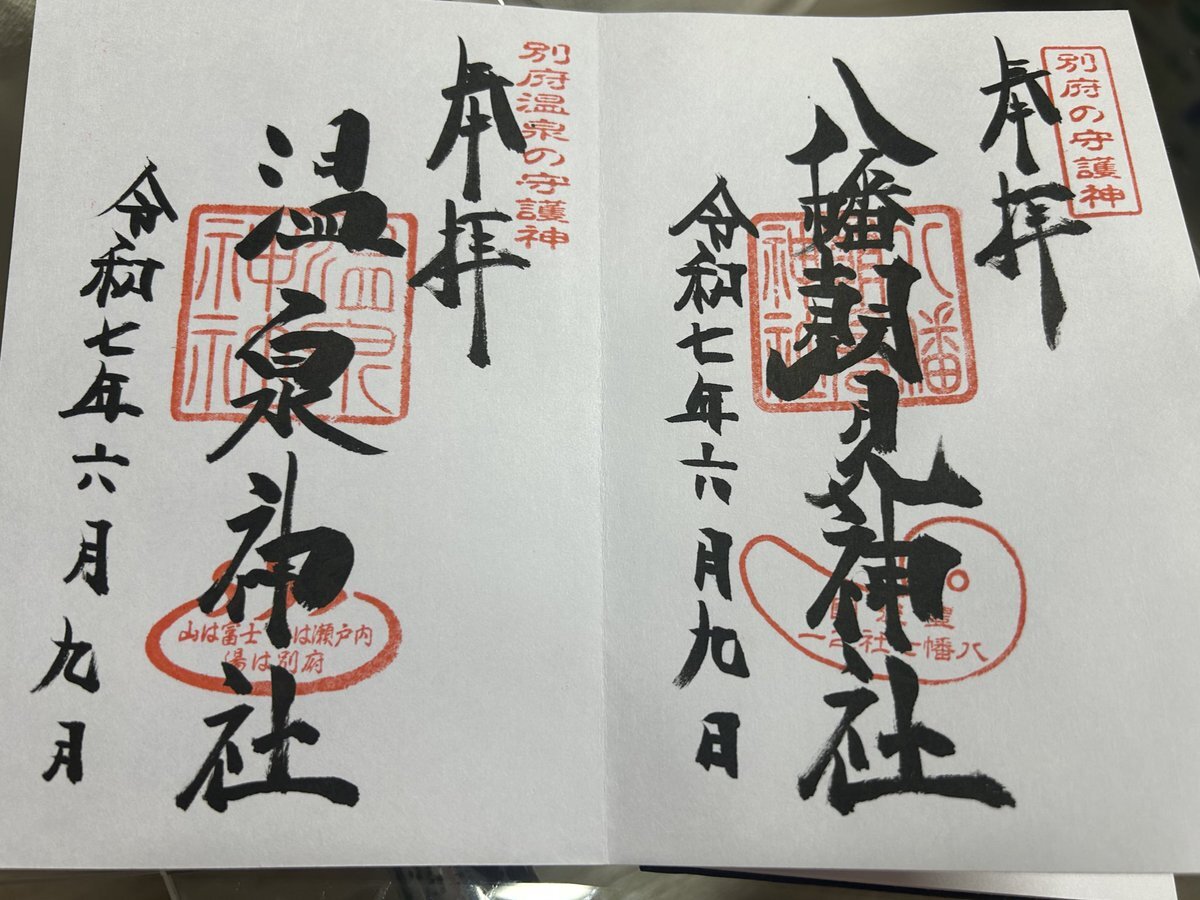 別府の守護神
奉拝
八幡朝見神社
八幡
神社
令和七年六月九日
別府温泉の守護神
奉拝
温泉神社
温泉
神社
山は富士 は瀬戸内
湯は別府
令和七年六月九月